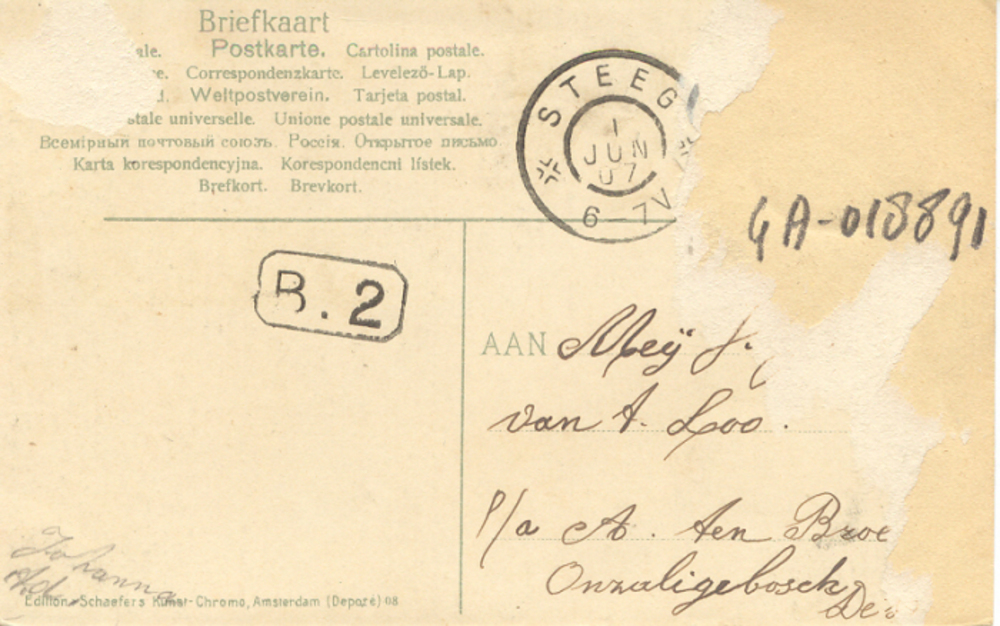 Briefkaart
ale. Postkarte. Cartolina postale.
e. Correspondenzkarte. Levelező-Lap.
d. Weltpostverein. Tarjeta postal.
stale universelle. Unione postale universale.
Всемірный почтовый союзъ. Россія. Открытое письмо
Karta korespondencyjna. Korespondencni listek.
Brefkort. Brevkort.
STEEG
1
JUN
07
6-7V
GA-018891
B.2
AAN Meij J.
van A. Loo.
p/a A. ten Broe
Onzaligebosch
De
Johanna
Edition Schaefers Kunst-Chromo, Amsterdam (Deposé) 08